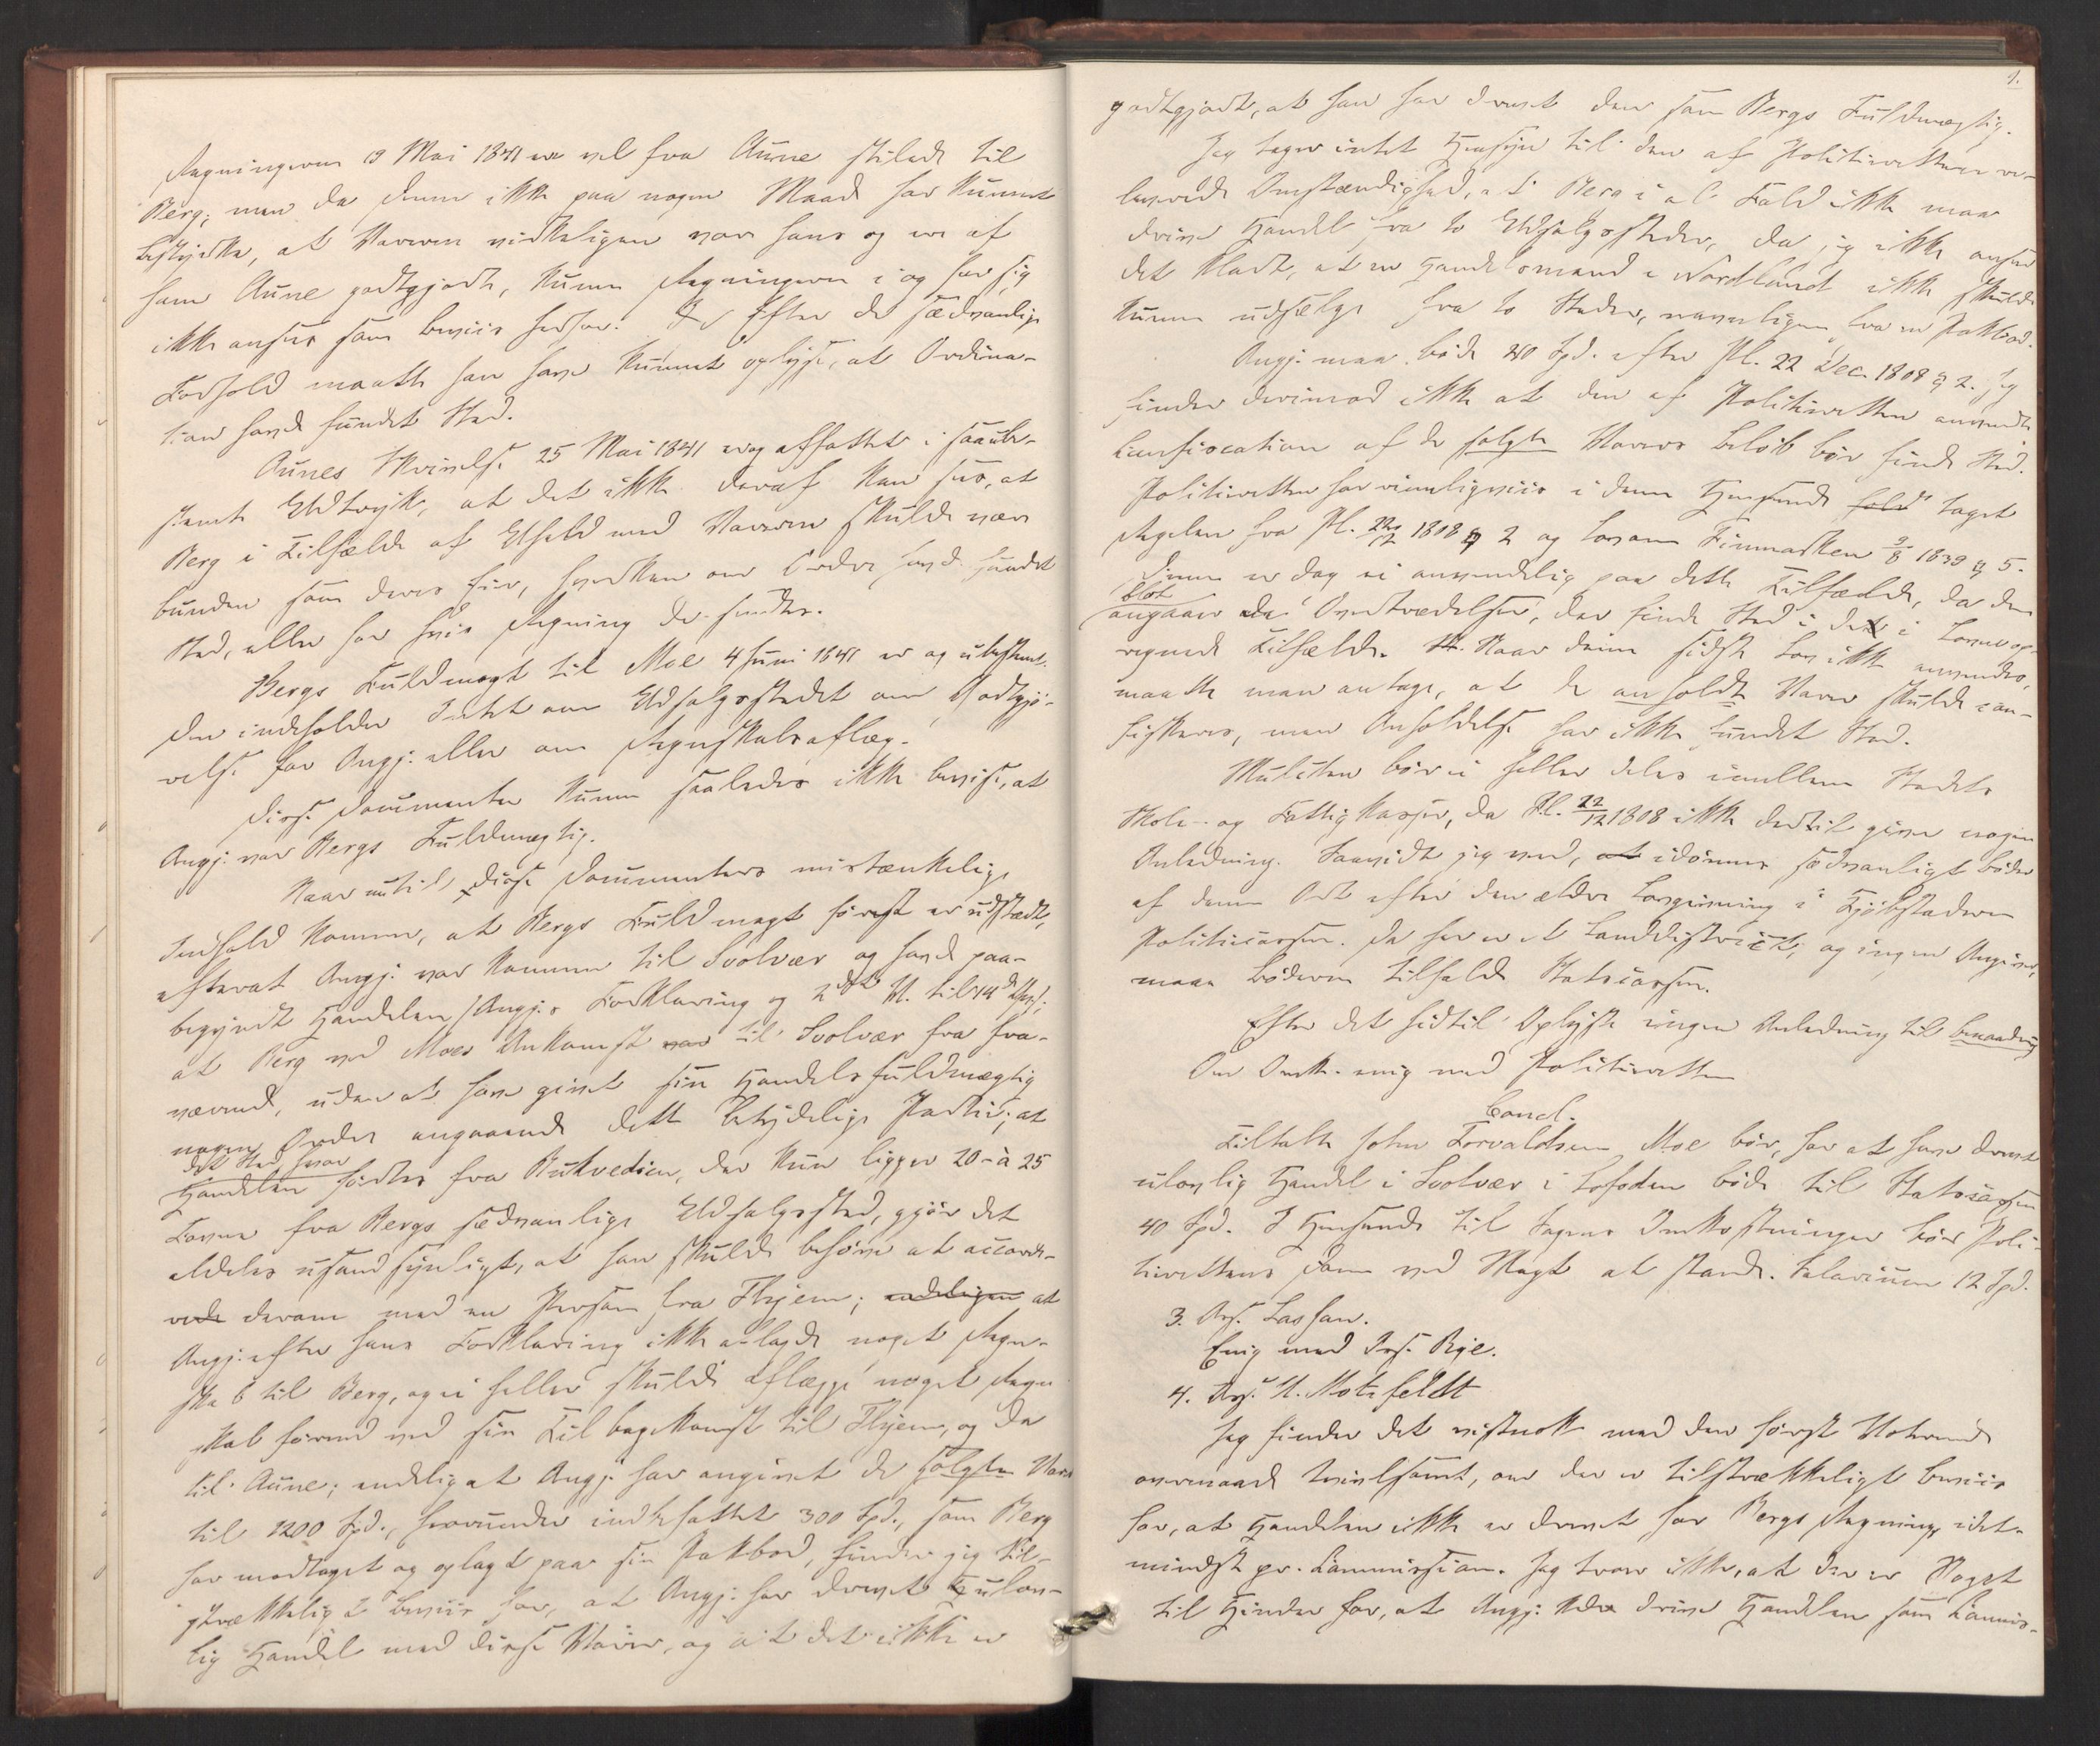 Regningerne 19 Mai 1841 ere vel fra Aune stilede til
Berg; men da denne ikke paa nogen Maade har kunnet
bestyrke, at Varerne virkeligen vare hans og ere af
ham Aune godtgjorte, kunne Regningerne i og for sig
ikke ansees som Beviis herfor. Efter de sædvanlige
Forhold maatte han have kunnet oplyse, at Ordina-
tion havde fundet Sted.
Aunes Skrivelse 25 Mai 1841 er og affattet i saa ube-
stemte Udtryk, at det ikke deraf kan sees, at
Berg i Tilfælde af Uheld med Varerne skulde være
bunden som deres Eier, hvorken om Ordre havde fundet
Sted, eller for hvis Regning de sendtes.
Bergs Fuldmagt til Moe 4 Juni 1841 er og ubestemt.
Den indeholder Intet om Udsalgsstedet om Godtgjö-
relse for Angj: eller om Regnskabsaflæg.
Disse Documenter kunne saaledes ikke bevise, at
Angj: var Bergs Fuldmægtig.
Naar nu til disse Documenters mistænkelige
Indhold kommer, at Bergs Fuldmagt förest er udstædt,
efterat Angj: var kommen til Svolvær og havde paa-
begyndt Handelen /Angj:s Forklaring og 2det Sp. til 14de
at Berg ved Moes Ankomst var til Svolvær fra fra-
værende, uden at have givet sin Handelsfuldmægtig
nogen Ordre angaaende dette betydelige Partie; at
det Sted hvor
Handelen förtes fra Rukvedien, der kun ligger 20 à 25
Favne fra Bergs sædvanlige Udsalgssted, gjör det
aldeles usandsynligt, at han skulde behöve at accorde-
rede derom med en Person fra Thjem; endeligen at
Angj: efter hans Forklaring ikke aflagde noget Regn-
skab til Berg, og ei heller skulde aflægge noget Regn
skab förend ved sin Tilbagekomst til Thjem, og da
til Aune; endelig at Angj: har angivet de solgte Varer
til 1200 Spd., herunder indbefattet 300 Spd., som Berg
har modtaget og oplagt paa sin Pakbod, finder jeg til-
strækkeligt Beviis for, at Angj: har drevet ulov-
lig Handel med disse Varer, og at det ikke er
9.
godtgjort, at han har drevet den som Bergs Fuldmægtig.
Jeg tager intet Hensyn til den af Politieretten re-
leverede Omstændighed, at Berg i al Fald ikke maa
drive Handel fra to Udsalgssteder, da jeg ikke anseer
det klart, at en Handelsmand i Nordland ikke skulde
kunne udsælge fra to Steder, navnligen fra en Pakbod.
Angj. maa böde 40 Spd. efter Pl. 22 Dec. 1808 § 2. Jeg
finder derimod ikke at den af Politieretten anvendte
Confiscation af de solgte Varers Belöb bör finde Sted.
Politieretten har rimeligviis i denne Henseende taget
Regelen fra Pl. 22/12 1808 § 2 og Lov om Finmarken 9/8 1839 § 5.
Denne er dog ei anvendelig paa dette Tilfælde, da den
blot
angaaer de Overtrædelser, der finde Sted i de i Loven op-
regnede Tilfælde. Naar denne sidste Lov ikke anvendes,
maatte man antage, at de anholdte Varer skulde con-
fiskeres, men Anholdelse har ikke fundet Sted.
Mulcten bör ei heller deles imellem Stedets
Skole- og Fattigkasser, da Pl. 22/12 1808 ikke dertil giver nogen
Anledning. Saavidt jeg veed, at idömmes sædvanligt böder
af denne Art efter den ældre Lovgivning i Kjöbstæderne
Politiecassen. Da her er et Landdistrict, og ingen Angiver,
maa Böderne tilfalde Statscassen.
Efter det hidtil Oplyste ingen Anledning til Benaadning
Om Omk. enig med Politieretten
Concl.
Tiltalte John Torvaldsen Moe bör, for at have drevet
ulovlig Handel i Svolvær i Lofoden böde til Statscassen
40 Spd. I Henseende til Sagens Omkostninger bör Poli-
tierettens Dom ved Magt at stande. Salarium 12 Spd.
3. Ass. Lasson.
Enig med Ass. Bye.
4. Ass. U. Motzfeldt
Jeg finder det vistnok med den förste Voterende
overmaade tvivlsomt, om der er tilstrækkeligt Beviis
for, at Handelen ikke er drevet for Bergs Regning, idet-
mindste pr. Commission. Jeg troer ikke, at der er Noget
til Hinder for, at Angj: kan drive Handelen som Commis-